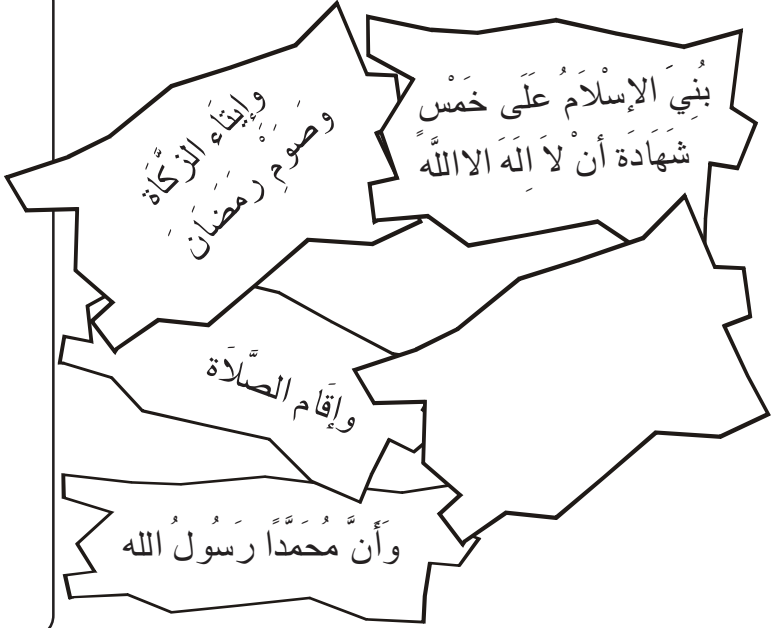 بُنِيَ الإِسْلاَمُ عَلَى خَمْسٍ
شَهَادَة أنْ لاَ إِلَهَ الاالله
وإيتَاء الزكَّاة
وصَوْمِ رمَضَانَ
وإقَام الصَّلَاة
وَأَنَّ مُحَمَّدًا رَسُولُ الله